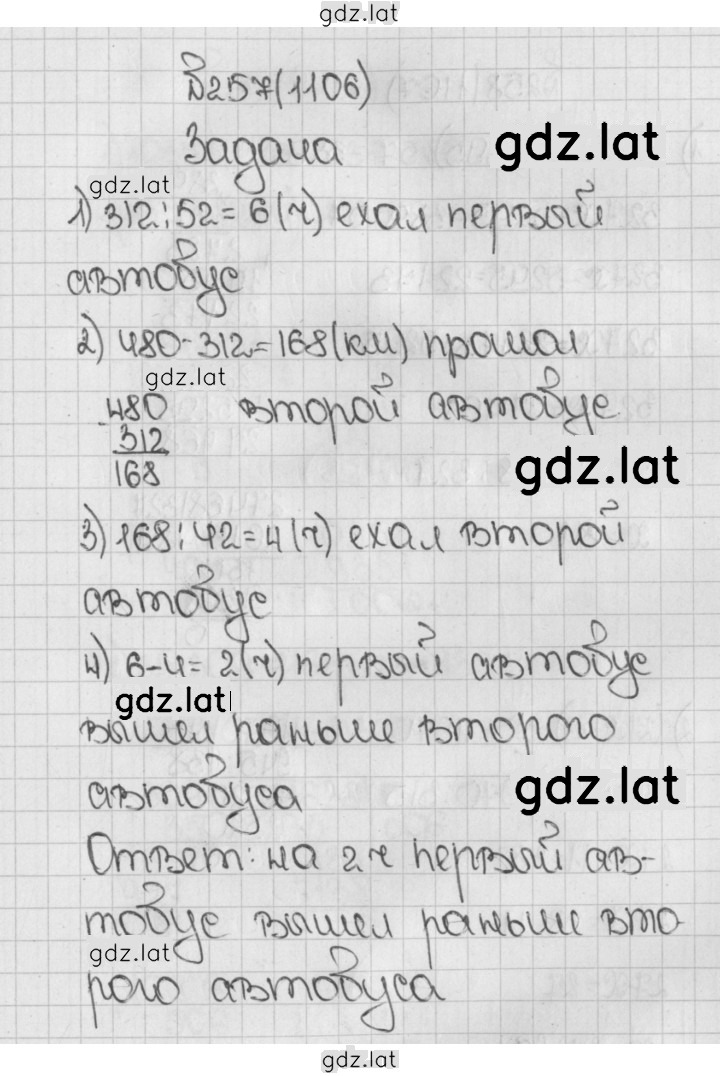 gdz.lat
№257(1106)
Задача
gdz.lat
gdz.lat
1) 312:52=6(ч) ехал первый
автобус
2) 480-312=168(км) прошол
gdz.lat
480 второй автобус
-
312
168
gdz.lat
3) 168:42=4(ч) ехал второй
автобус
4) 6-4=2(ч) первый автобус
gdz.lat
вышел раньше второго
автобуса
gdz.lat
Ответ: на 2 ч первый ав-
тобус вышел раньше вто-
gdz.lat
рого автобуса
gdz.lat